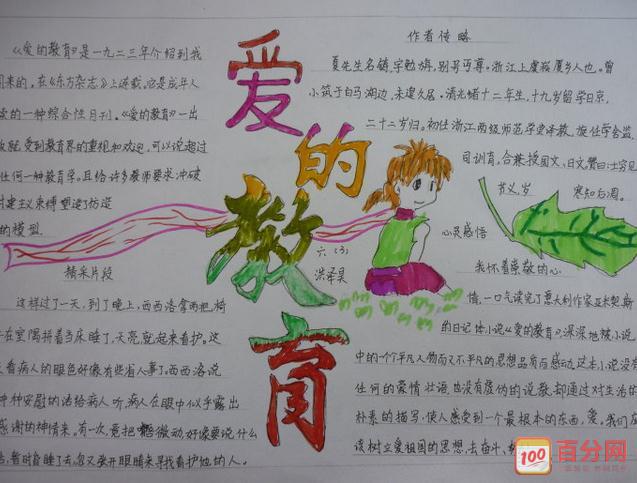 《爱的教育》是一九二三年介绍到我
国来的,在《东方杂志》上连载,它是成年人
读的一种综合性月刊。《爱的教育》一出
版就受到教育界的重视和欢迎,可以说超过
任何一种教育学。且给许多教师要求冲破
封建主义束缚塑造了仿造
的模型.
精采片段
这样过了一天,到了晚上,西西洛拿两把椅
子在室隅拼着当床睡了,天亮,就起来看护。这
天看病人的眼色好像有些省人事了。西西洛说
种种安慰的话给病人听,病人在眼中似乎露出
感谢的神情来。有一次,竟把微动,好像要说什么
话,暂时昏睡了去,忽又张开眼睛来寻找看护他的人。
爱的教育
六(3)
洪泽昊
作者传略
夏先生名铸,字勉旃,别号丏尊。浙江上虞崧厦乡人也。曾
小筑于白马湖边,未建久居。清光绪十二年生,十九岁留学日京,
二十二岁归。初任浙江两级师范学堂译教,旋任学舍监,
司训育。合兼授国文、日文。
寒知后凋。
心灵感悟
我怀着崇敬的心
情,一口气读完了意大利作家亚米契斯
的日记体小说《爱的教育》。深深地被小说
中的一个个平凡人物而又不平凡的思想品质与感动。这本小说没有
任何的豪情壮语,也没有虚伪的说教,却通过对生活的
朴素的描写,使人感受到一个最根本的东西,爱。我们应
该树立爱祖国的思想,去奋斗,
100 百分网